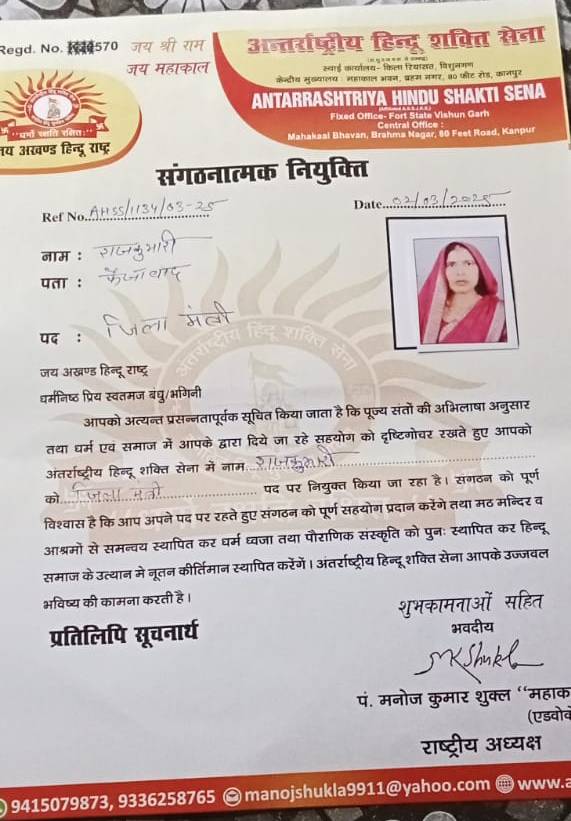 Regd. No. 570
जय श्री राम
जय महाकाल
"धर्मो रक्षति रक्षितः"
य अखण्ड हिन्दू राष्ट्र
अन्तर्राष्ट्रीय हिन्दू शक्ति सेना
स्थाई कार्यालय- किला रियासत, विशुनगण
केन्द्रीय मुख्यालय : महाकाल भवन, ब्रहम नगर, 80 फीट रोड, कानपुर
ANTARRASHTRIYA HINDU SHAKTI SENA
Fixed Office- Fort State Vishun Garh
Central Office :
Mahakaal Bhavan, Brahma Nagar, 80 Feet Road, Kanpur
संगठनात्मक नियुक्ति
Ref No. AHSS/1134/03-25 Date. 02/03/2025
नाम : राजकुमारी
पता : फैजाबाद
पद : जिला मंत्री
जय अखण्ड हिन्दू राष्ट्र
धर्मनिष्ठ प्रिय स्वतमज बंधु/भगिनी
आपको अत्यन्त प्रसन्नतापूर्वक सूचित किया जाता है कि पूज्य संतों की अभिलाषा अनुसार
तथा धर्म एवं समाज में आपके द्वारा दिये जा रहे सहयोग को दृष्टिगोचर रखते हुए आपको
अंतर्राष्ट्रीय हिन्दू शक्ति सेना में नाम राजकुमारी
को जिला मंत्री पद पर नियुक्त किया जा रहा है। संगठन को पूर्ण
विश्वास है कि आप अपने पद पर रहते हुए संगठन को पूर्ण सहयोग प्रदान करेंगे तथा मठ मन्दिर व
आश्रमों से समन्वय स्थापित कर धर्म ध्वजा तथा पौराणिक संस्कृति को पुनः स्थापित कर हिन्दू
समाज के उत्थान मे नूतन कीर्तिमान स्थापित करेंगें। अंतर्राष्ट्रीय हिन्दू शक्ति सेना आपके उज्जवल
भविष्य की कामना करती है।
शुभकामनाओं सहित
भवदीय
प्रतिलिपि सूचनार्थ
MKShukla
पं. मनोज कुमार शुक्ल "महाक
(एडवोके
राष्ट्रीय अध्यक्ष
9415079873, 9336258765 manojshukla9911@yahoo.com www.a